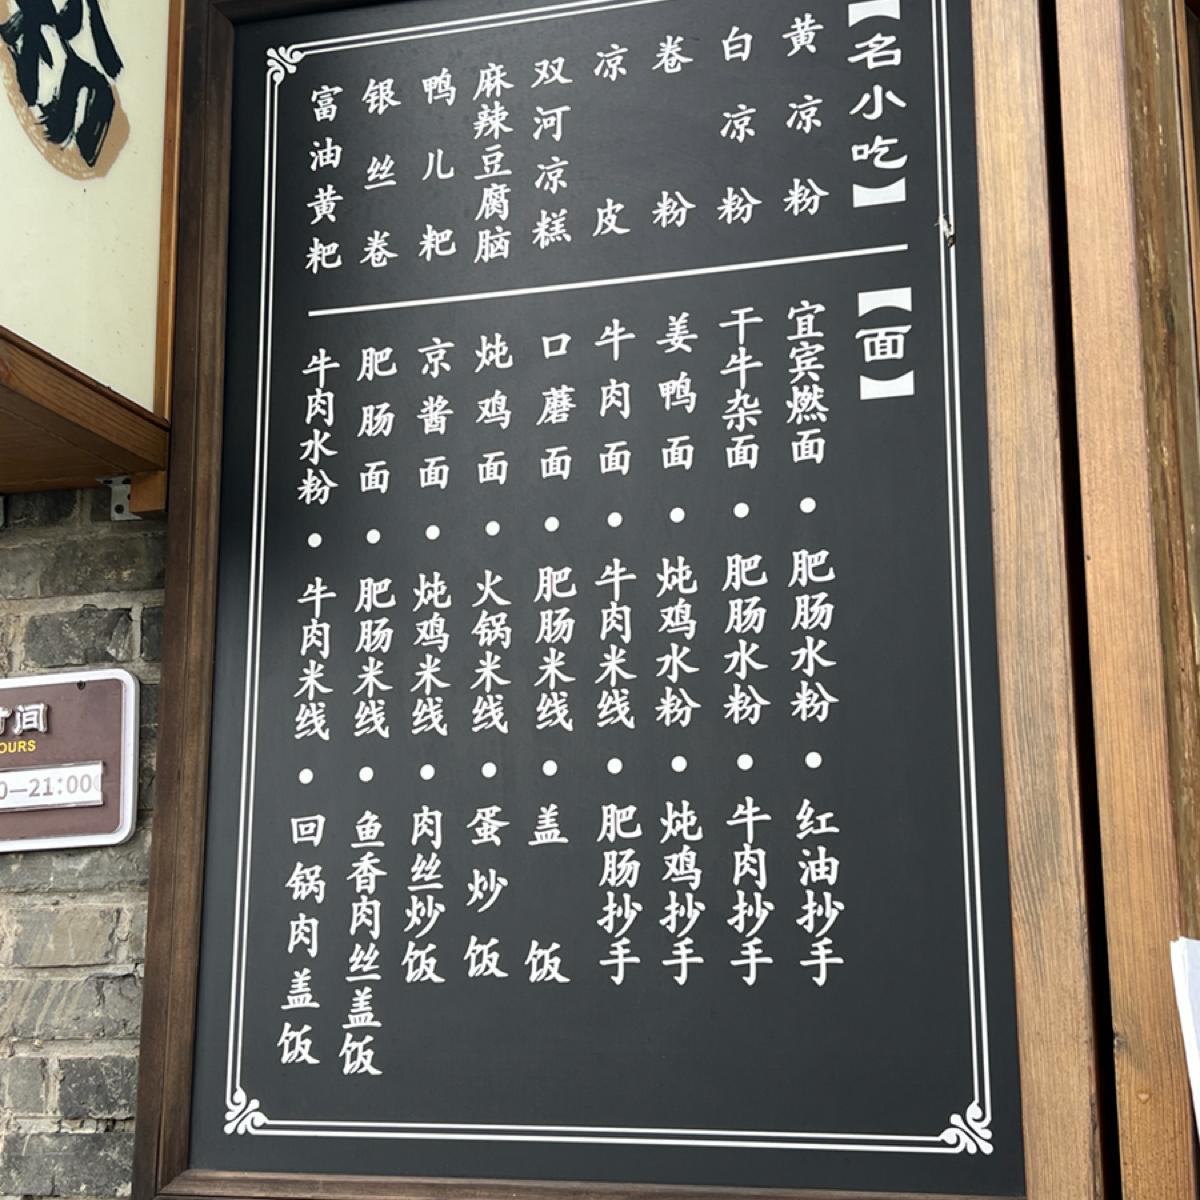 【名小吃】
黄凉粉
白凉粉
卷粉
凉皮
双河凉糕
麻辣豆腐脑
鸭儿粑
银丝卷
富油黄粑
【面】
宜宾燃面•肥肠水粉•红油抄手
干牛杂面•肥肠水粉•牛肉抄手
姜鸭面•炖鸡水粉•炖鸡抄手
牛肉面•牛肉米线•肥肠抄手
口蘑面•肥肠米线•盖饭
炖鸡面•火锅米线•蛋炒饭
京酱面•炖鸡米线•肉丝炒饭
肥肠面•肥肠米线•鱼香肉丝盖饭
牛肉水粉•牛肉米线•回锅肉盖饭
时间
OURS
0—21:00